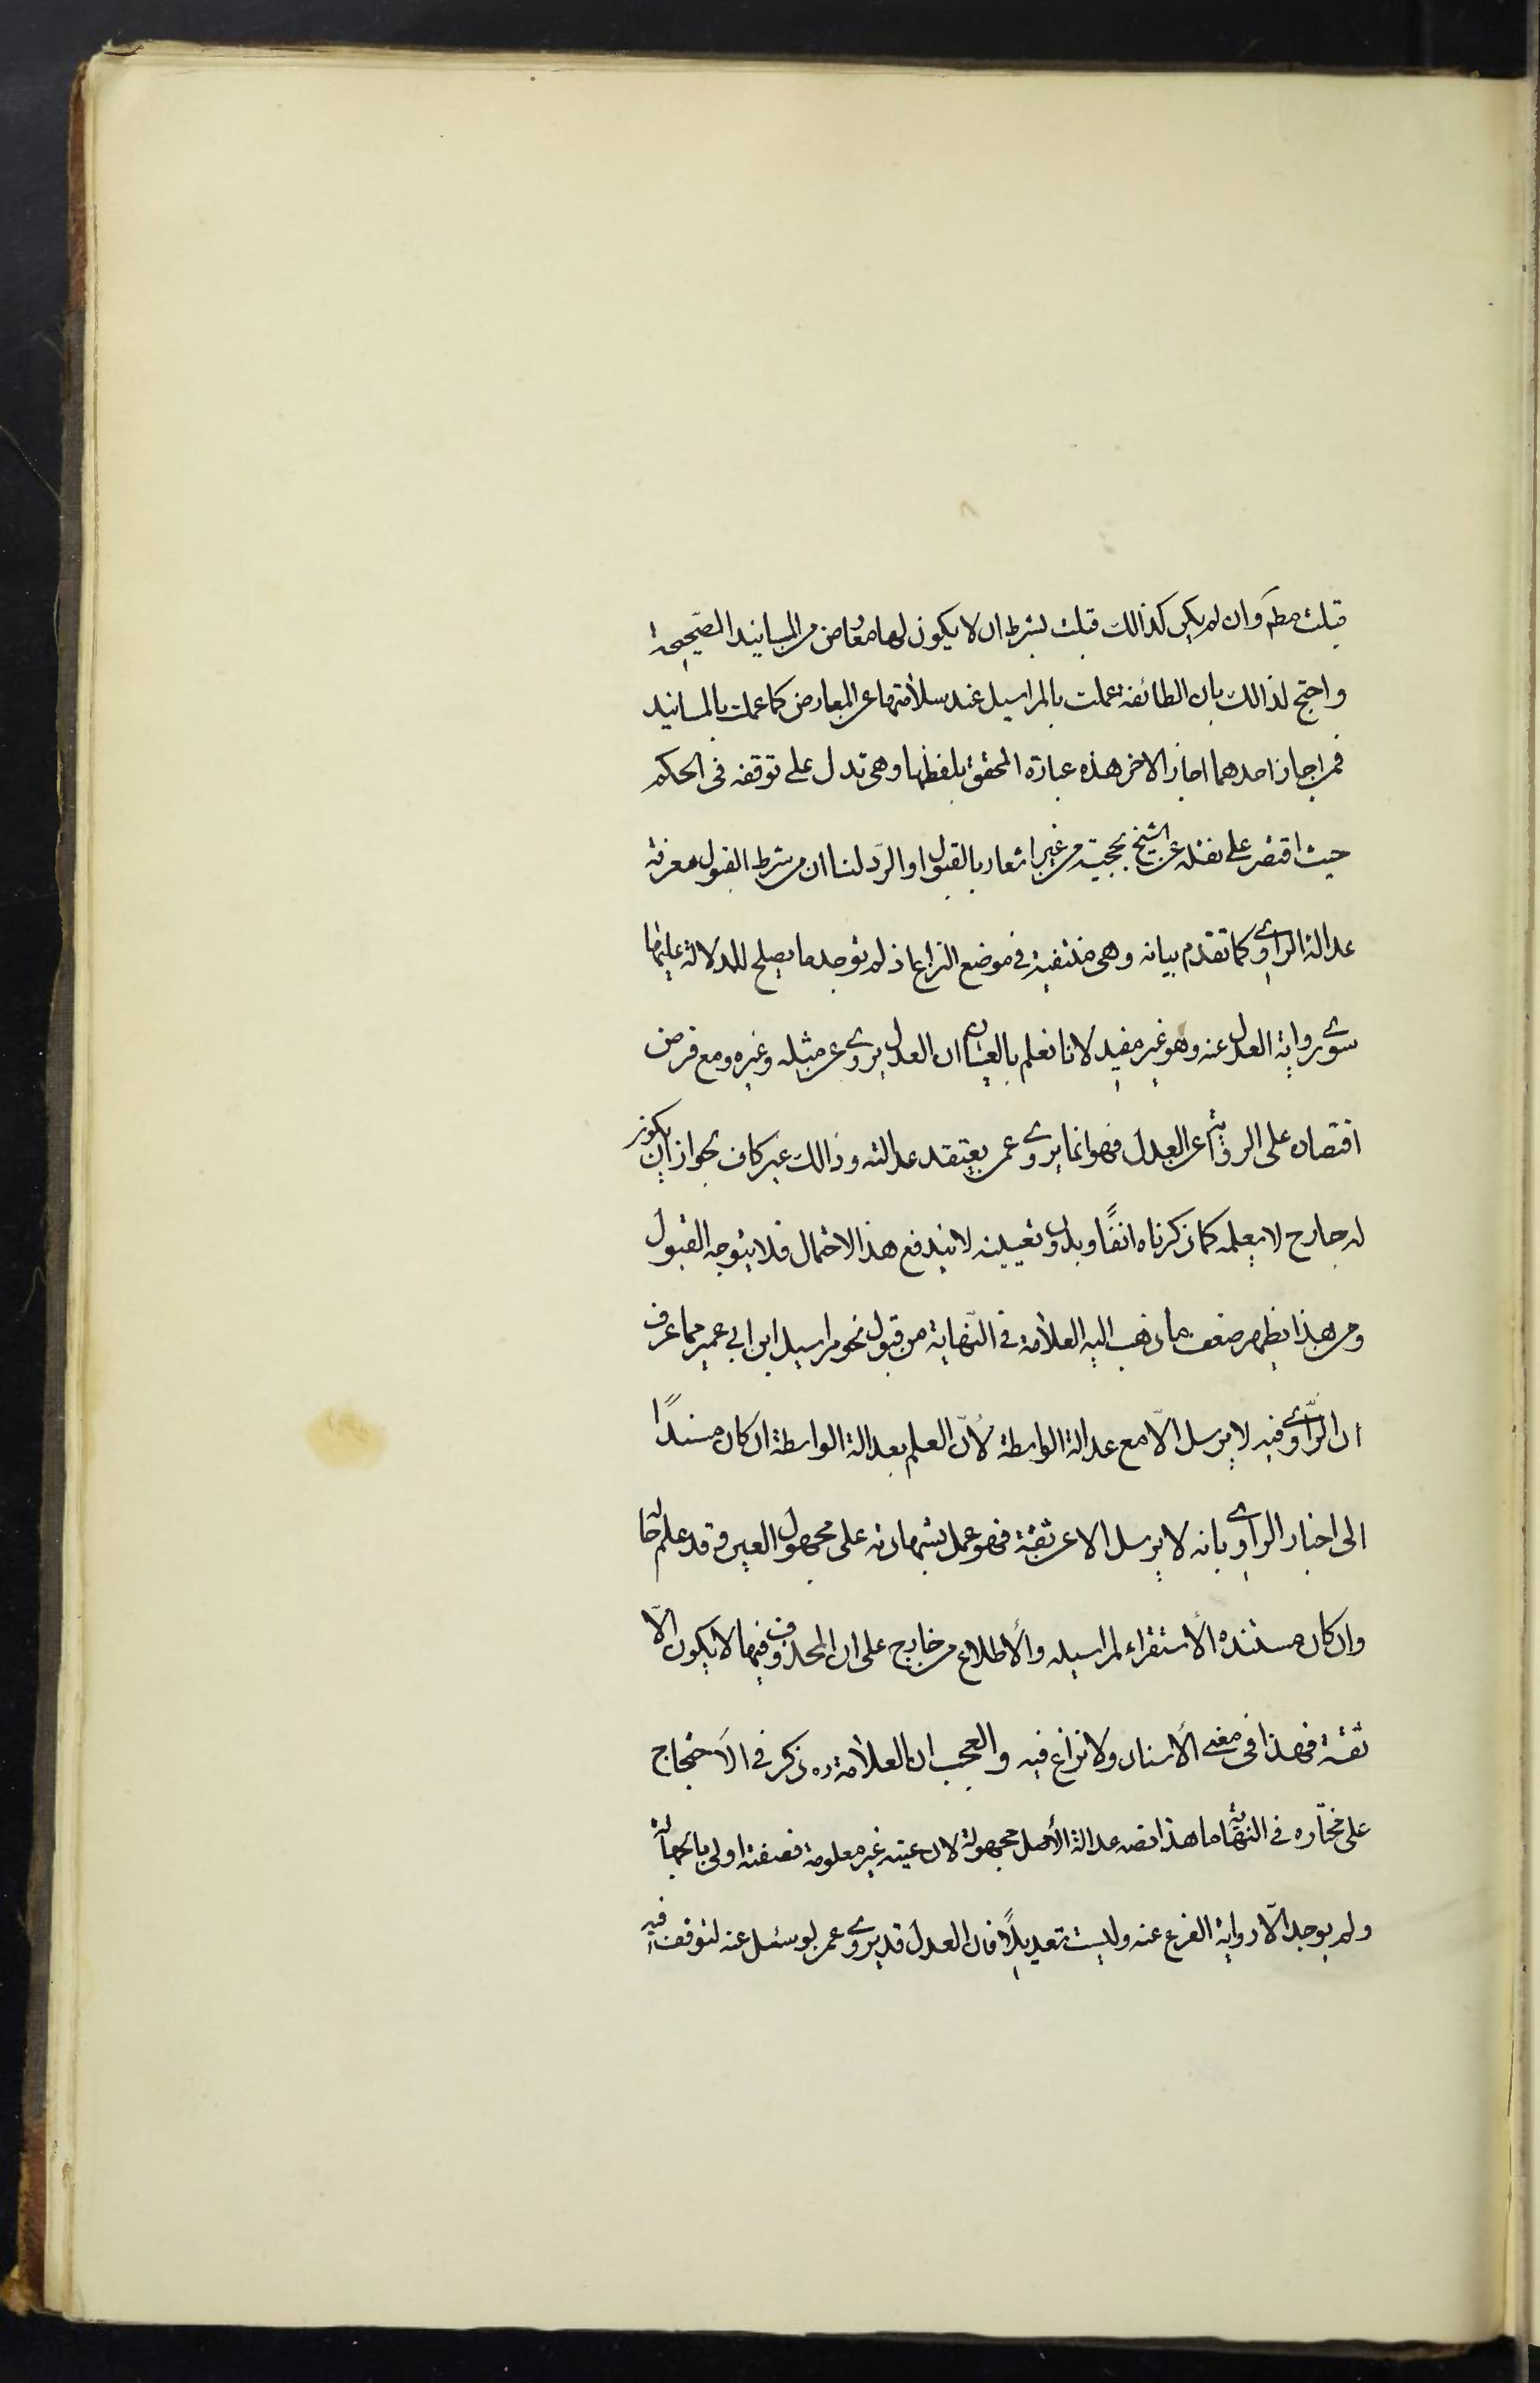 قبلت مطم وان لم يكن كذالك قبلت بشرط ان لا يكون لها معارض من المسانيد الصّحيحة
واحتج لذالك بان الطائفة عملت بالمراسيل عند سلامتها عن المعارض كما عملت بالمسانيد
فمن اجاز احدهما اجاز الاخر هذه عبارة المحقق بلفظها وهى تدل على توقفه فى الحكم
حيث اقتصر على نقله عن الشيخ بحجيته من غير اشعار بالقبول او الرّد لنا ان من شرط القبول معرفة
عدالة الراوى كما تقدم بيانه وهى منتفية فى موضع النزاع اذ لم يوجد ما يصلح للدلالة عليها
سوى رواية العدل عنه وهو غير مفيد لانا نعلم بالعيان ان العدل يروى عن مثله وغيره ومع فرض
اقتصاره على الرواية عن العدل فهو انما يروى عمن يعتقد عدالته وذالك غير كاف لجواز ان يكون
له جارح لا يعلمه كما ذكرناه انفًا وبدون تعيينه لا يندفع هذا الاحتمال فلا يتوجه القبول
ومن هذا يظهر ضعف ما ذهب اليه العلامة فى النّهاية من قبول نحو مراسيل ابن ابى عمير مما عرف
ان الرّاوى فيه لا يرسل الّا مع عدالة الواسطة لأنّ العلم بعدالة الواسطة ان كان مسندًا
الى اخبار الراوى بانه لا يرسل الا عن ثقة فهو عمل بشهادته على مجهول العين وقد علم حاله
وان كان مستنده الأستقراء لمراسيله والأطلاع من خارج على ان المحذوف فيها لا يكون الّا
ثقة فهذا فى معنى الأسناد ولا نزاع فيه والعجب ان العلامة ره ذكر فى الأحتجاج
على مختاره فى النهاية ما هذا نصه عدالة الأصل مجهولة لان عينه غير معلومة فصفته اولى بالجهالة
ولم يوجد الّا رواية الفرع عنه وليست تعديلًا فان العدل قد يروى عمن لو سئل عنه لتوقف فيه